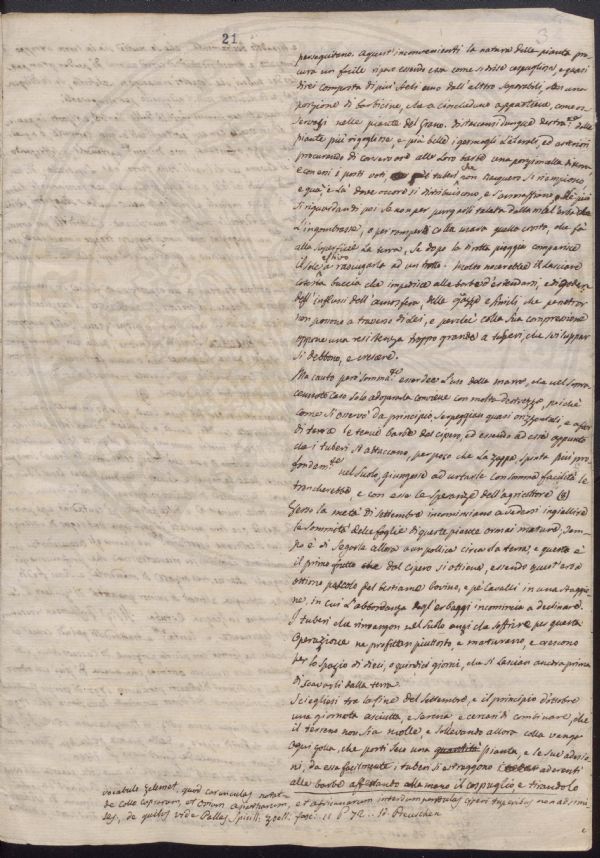 21
3
perseguitano. A quest'inconvenienti la natura della pianta pro
cura un facile riparo essendo essa come si disse cespugliosa, e quasi
direi composta di più steli uno dall'altro separabili, con una
porzione di barbicine, che a ciascheduno appartiene, come os
servasi nelle piante del Grano. Distaccansi dunque destram.te dalle
piante più rigogliose, e più belle i germogli laterali, ed esteriori
procurando di conservare alle loro barbe una porzioncella di terra,
e con essi i posti voti, ove i tuberi non nacquero si riempiono
e quà, e là dove occorre si distribuiscono, e s'annaffiano, nè più
si riguardan di poi se non per purgarli talora dalla mal'erba che
l'ingombrasse, o per romper colla marra quella crosta, che fà
alla superficie la terra, se dopo la dirotta pioggia comparisce
il sole estivo a rasciugarla ad un tratto. Molto nocerebbe il lasciare
cotesta buccia che impedisce alle barbe d'estendersi, e di goder
degl'influssi dell'atmosfera, delle guazze, e simili che penetrar
non possono a traverso di lei, e perchè colla sua compressione
oppone una resistenza troppo grande a' tuberi, che sviluppar
si debbono, e crescere.
Ma cauto però somma.te esser dee l'uso della marra, che nel sopra
cennato caso solo adoprarla conviene con molta destrezza, poichè
come si osservò da principio serpeggian quasi orizzontali, e a fior
di terra le tenui barbe del cipero, ed essendo ad esse appunto
che i tuberi si attaccano, per poco che la zappa spinta più pro
fondam.te nel suolo, giungesse ad urtarle con somma facilità le
troncherebbe, e con esse le speranze dell'agricoltore (8)
Verso la metà di Settembre incominciano a vedersi ingiallire
le sommità delle foglie di queste piante ormai mature; Tem
po è di segarle allora a un pollice circa da terra, e questo è
il primo frutto che dal cipero si ottiene, essendo quest'erba
ottimo pascolo pel bestiame bovino, e pe' Cavalli in una stagio
ne, in cui l'abbondanza degl'erbaggi incomincia a declinare.
I tuberi che rimangon nel suolo anzi che soffrire per questa
operazione ne profittan piuttosto, e maturano, e crescono
per lo spazio di dieci, o quindici giorni, che si lascian ancora prima
di scavarli dalla terra.
Scieglesi tra la fine del Settembre, e il principio d'ottobre
una giornata asciutta, e serena e cercasi di combinare, che
il terreno non sia molle, e sollevando allora colla vanga
ogni zolla, che porti seco una quantità pianta, e le sue adesio
ni, da essa facilmente i tuberi si estraggono aderenti
alle barbe afferrando alla mano il cespuglio e tirandolo
vocabulo zelemet, quod carunculas notat
de collo caprarum, et ovium asiaticarum, et africanarum interdum pendulas cyperi tuberibus non absimi
les, de quibus vide Pallas Spicil: zool: fasc: 11 p. 72. Id. Breuschen
e